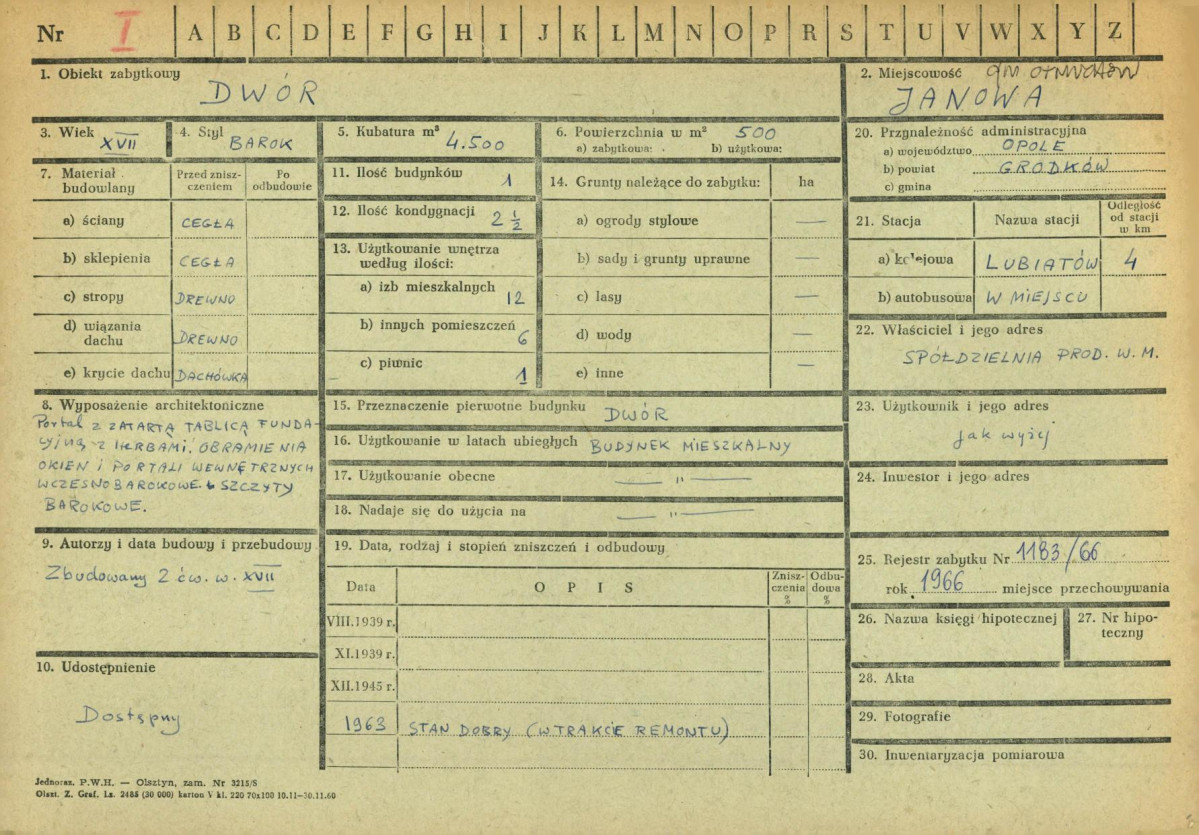 Nr I A B C D E F G H I J K L M N O P R S T U V W X Y Z
1. Obiekt zabytkowy
DWÓR
2. Miejscowość gm otmuchów
JANOWA
3. Wiek
XVII
4. Styl
BAROK
5. Kubatura m³
4.500
6. Powierzchnia w m² 500
a) zabytkowa: b) użytkowa:
20. Przynależność administracyjna
a) województwo OPOLE
b) powiat GRODKÓW
c) gmina
7. Materiał budowlany
Przed znisz-
czeniem
Po
odbudowie
a) ściany CEGŁA
b) sklepienia CEGŁA
c) stropy DREWNO
d) wiązania
dachu DREWNO
e) krycie dachu DACHÓWKA
11. Ilość budynków 1
12. Ilość kondygnacji 2 1/2
13. Użytkowanie wnętrza
według ilości:
a) izb mieszkalnych 12
b) innych pomieszczeń 6
c) piwnic 1
14. Grunty należące do zabytku: ha
a) ogrody stylowe —
b) sady i grunty uprawne —
c) lasy —
d) wody —
e) inne —
21. Stacja Nazwa stacji
Odległość
od stacji
w km
a) kolejowa LUBIATÓW 4
b) autobusowa W MIEJSCU
22. Właściciel i jego adres
SPÓŁDZIELNIA PROD. W. M.
8. Wyposażenie architektoniczne
Portal z ZATARTĄ TABLICĄ FUNDA-
cyjną z HERBAMI. OBRAMIENIA
OKIEN i PORTALI WEWNĘTRZNYCH
WCZESNOBAROKOWE. SZCZYTY
BAROKOWE.
15. Przeznaczenie pierwotne budynku DWÓR
16. Użytkowanie w latach ubiegłych BUDYNEK MIESZKALNY
17. Użytkowanie obecne — " —
18. Nadaje się do użycia na — " —
23. Użytkownik i jego adres
jak wyżej
24. Inwestor i jego adres
9. Autorzy i data budowy i przebudowy
Zbudowany 2 ćw. w. XVII
10. Udostępnienie
Dostępny
19. Data, rodzaj i stopień zniszczeń i odbudowy
Data OPIS
Znisz-
czenia
%
Odbu-
dowa
%
VIII.1939 r.
XI.1939 r.
XII.1945 r.
1963 STAN DOBRY (W TRAKCIE REMONTU)
25. Rejestr zabytku Nr 1183/66
rok 1966 miejsce przechowywania
26. Nazwa księgi hipotecznej
27. Nr hipo-
teczny
28. Akta
29. Fotografie
30. Inwentaryzacja pomiarowa
Jednoraz. P.W.H. — Olsztyn, zam. Nr 3215/S
Olszt. Z. Graf. Lz. 2485 (30 000) karton V kl. 220 70x100 10.11—30.11.60